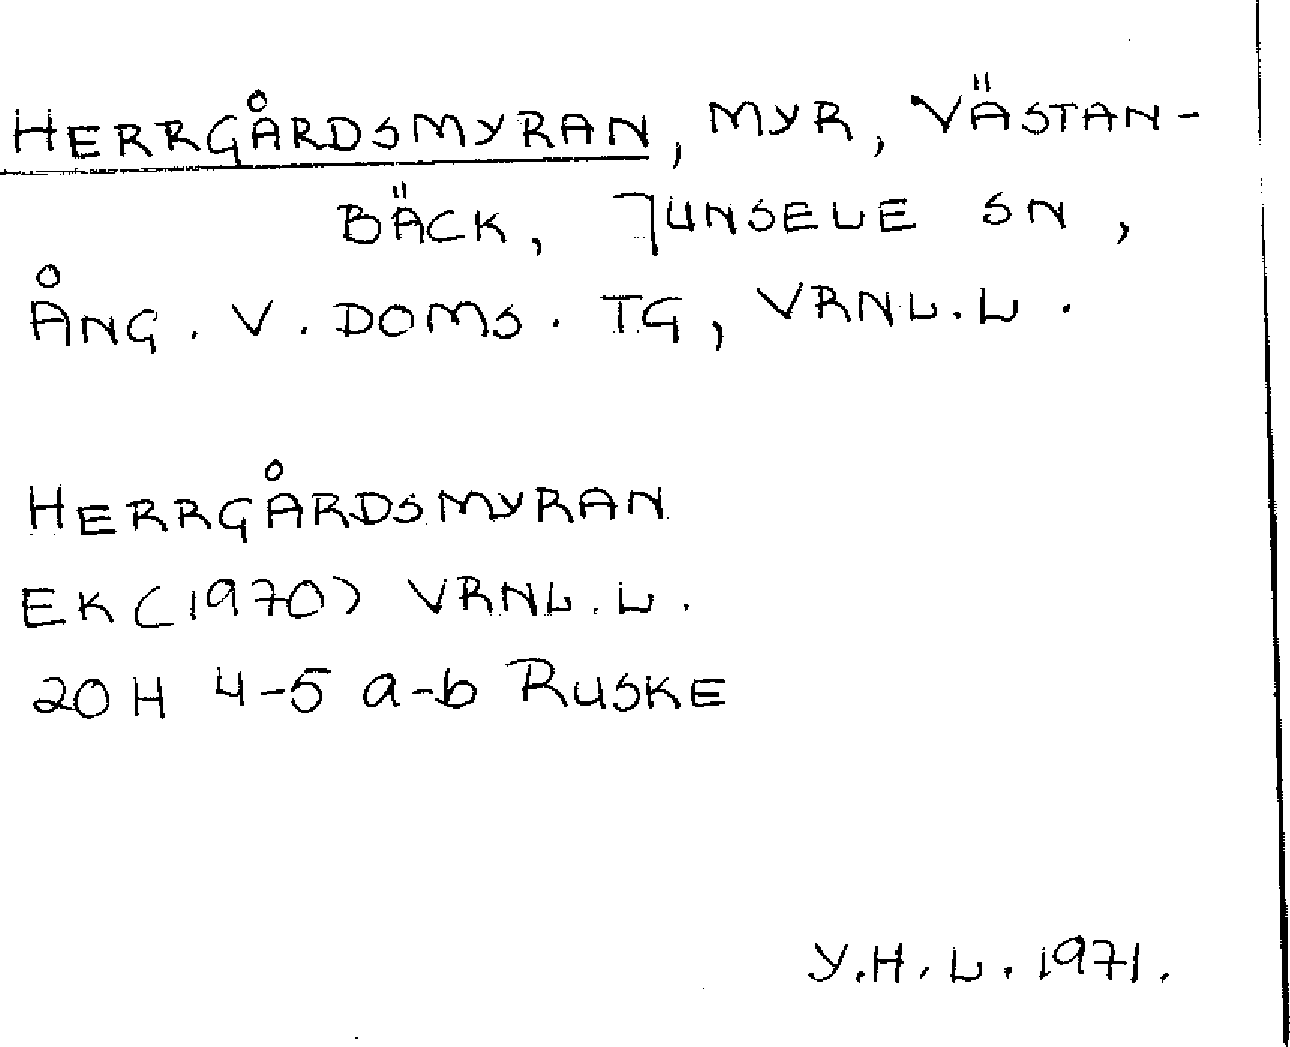 HERRGÅRDSMYRAN, MYR, VÄSTAN-
BÄCK, JUNSELE SN,
ÅNG. V. DOMS. TG, VRNL.L.
HERRGÅRDSMYRAN
EK(1970) VRNL.L.
20H 4-5 a-b RUSKE
Y.H.L. 1971.